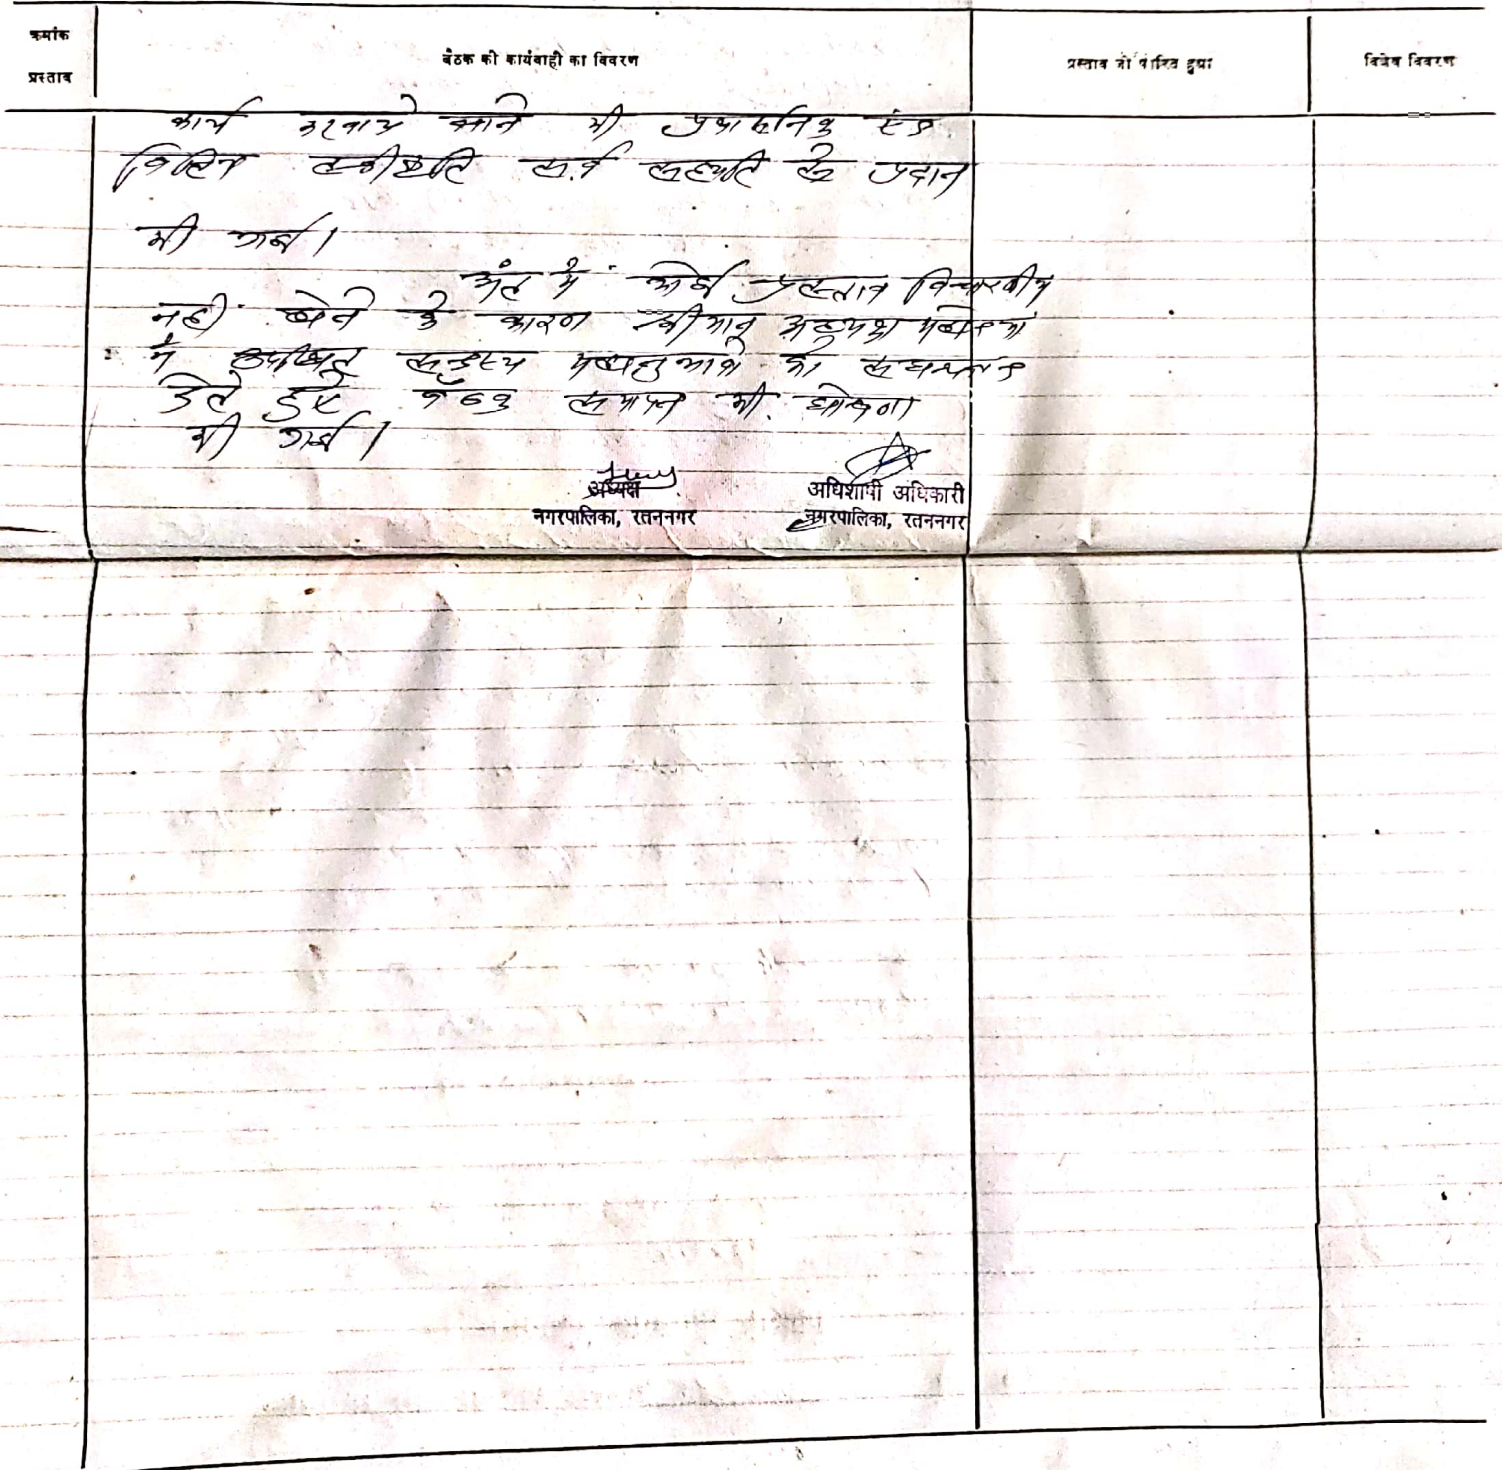 क्रमांक
प्रस्ताव
बैठक की कार्यवाही का विवरण
प्रस्ताव जो पारित हुआ
विशेष विवरण
कार्य करवाये जाने की प्रशासनिक एवं
वित्तिय स्वीकृति सर्व सहमति से प्रदान
की गई।
अंत में कोई प्रस्ताव विचारणीय
नहीं होने के कारण श्रीमान् अध्यक्ष महोदय
ने उपस्थित सदस्य महानुभावो को धन्यवाद
देते हुए बैठक समाप्त की घोषणा
की गई।
अध्यक्ष
नगरपालिका, रतननगर
अधिशाषी अधिकारी
नगरपालिका, रतननगर